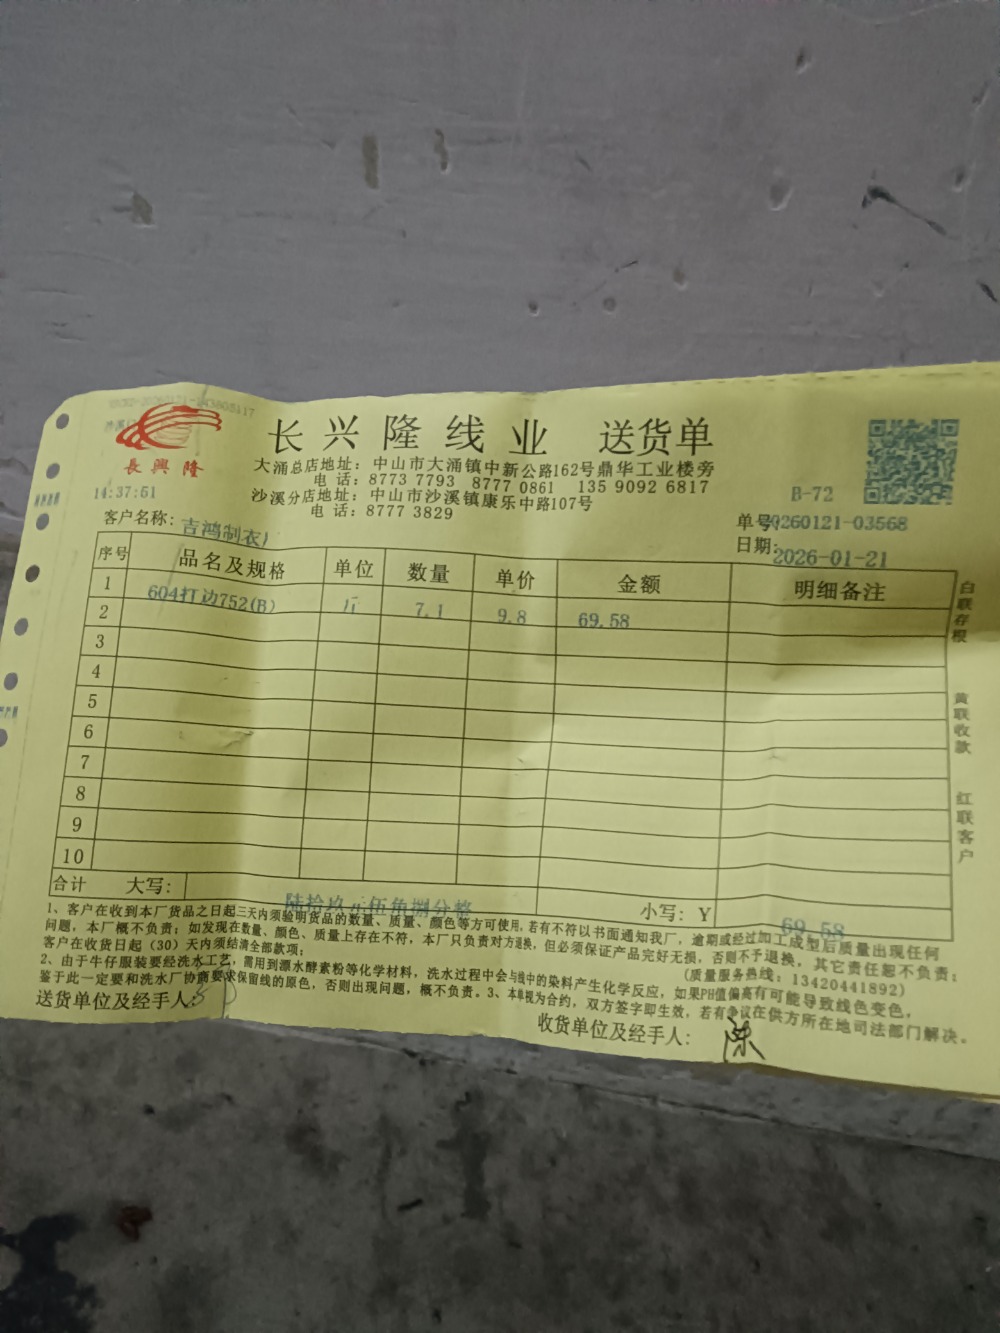 長興隆
长兴隆线业 送货单
大涌总店地址：中山市大涌镇中新公路162号鼎华工业楼旁
电话：8773 7793 8777 0861 135 9092 6817
沙溪分店地址：中山市沙溪镇康乐中路107号
电话：8777 3829
14:37:51
B-72
客户名称：吉鸿制衣厂
单号：20260121-03568
日期：2026-01-21
序号 品名及规格 单位 数量 单价 金额 明细备注
1 604打边752(B) 斤 7.1 9.8 69.58
2
3
4
5
6
7
8
9
10
合计 大写：陆拾玖元伍角捌分整 小写：Y 69.58
白联存根
黄联收款
红联客户
1、客户在收到本厂货品之日起三天内须验明货品的数量、质量、颜色等方可使用，若有不符以书面通知我厂，逾期或经过加工成型后质量出现任何
问题，本厂概不负责；如发现在数量、颜色、质量上存在不符，本厂只负责对方退换，但必须保证产品完好无损，否则不予退换，其它责任恕不负责；
客户在收货日起（30）天内须结清全部款项；
（质量服务热线：13420441892）
2、由于牛仔服装要经洗水工艺，需用到漂水酵素粉等化学材料，洗水过程中会与线中的染料产生化学反应，如果PH值偏高有可能导致线色变色，
鉴于此一定要和洗水厂协商要求保留线的原色，否则出现问题，概不负责。3、本单视为合约，双方签字即生效，若有争议在供方所在地司法部门解决。
送货单位及经手人：
收货单位及经手人：